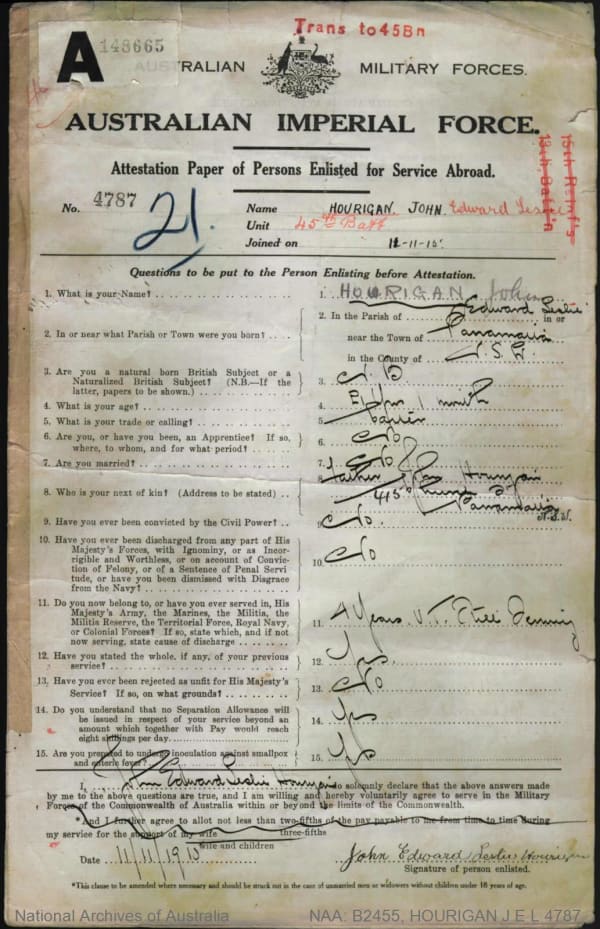 Trans to 45 Bn
A
148665
AUSTRALIAN MILITARY FORCES.
AUSTRALIAN IMPERIAL FORCE.
Attestation Paper of Persons Enlisted for Service Abroad.
15th Reinf's
13th Batt'n
No. 4787
21.
Name HOURIGAN, JOHN Edward Leslie
Unit 45th Batt
Joined on 12-11-15
Questions to be put to the Person Enlisting before Attestation.
1. What is your Name? 1. HOURIGAN John
Edward Leslie
2. In or near what Parish or Town were you born? 2. In the Parish of in or
near the Town of
in the County of N.S.W.
3. Are you a natural born British Subject or a
Naturalized British Subject? (N.B.—If the
latter, papers to be shown.) 3.
4. What is your age? 4.
5. What is your trade or calling? 5.
6. Are you, or have you been, an Apprentice? If so,
where, to whom, and for what period? 6. No
7. Are you married? 7. No
8. Who is your next of kin? (Address to be stated) 8. Father Hourigan
415
N.S.W.
9. Have you ever been convicted by the Civil Power? 9. No.
10. Have you ever been discharged from any part of His
Majesty's Forces, with Ignominy, or as Incor-
rigible and Worthless, or on account of Convic-
tion of Felony, or of a Sentence of Penal Servi
tude, or have you been dismissed with Disgrace
from the Navy? 10. No
11. Do you now belong to, or have you ever served in, His
Majesty's Army, the Marines, the Militia, the
Militia Reserve, the Territorial Force, Royal Navy,
or Colonial Forces? If so, state which, and if not
now serving, state cause of discharge 11. 4 Years Still Serving
12. Have you stated the whole, if any, of your previous
service? 12. Yes.
13. Have you ever been rejected as unfit for His Majesty's
Service? If so, on what grounds? 13. No
14. Do you understand that no Separation Allowance will
be issued in respect of your service beyond an
amount which together with Pay would reach
eight shillings per day. 14. Yes
15. Are you prepared to undergo inoculation against smallpox
and enteric fever? 15. Yes
I, John Edward Leslie Hourigan do solemnly declare that the above answers made
by me to the above questions are true, and I am willing and hereby voluntarily agree to serve in the Military
Forces of the Commonwealth of Australia within or beyond the limits of the Commonwealth.
*And I further agree to allot not less than two-fifths of the pay payable to me from time to time during
three-fifths
my service for the support of my wife
wife and children
Date 11/11/1915
John Edward Leslie Hourigan
Signature of person enlisted.
*This clause to be amended where necessary and should be struck out in the case of unmarried men or widowers without children under 16 years of age.
National Archives of Australia NAA: B2455, HOURIGAN J E L 4787